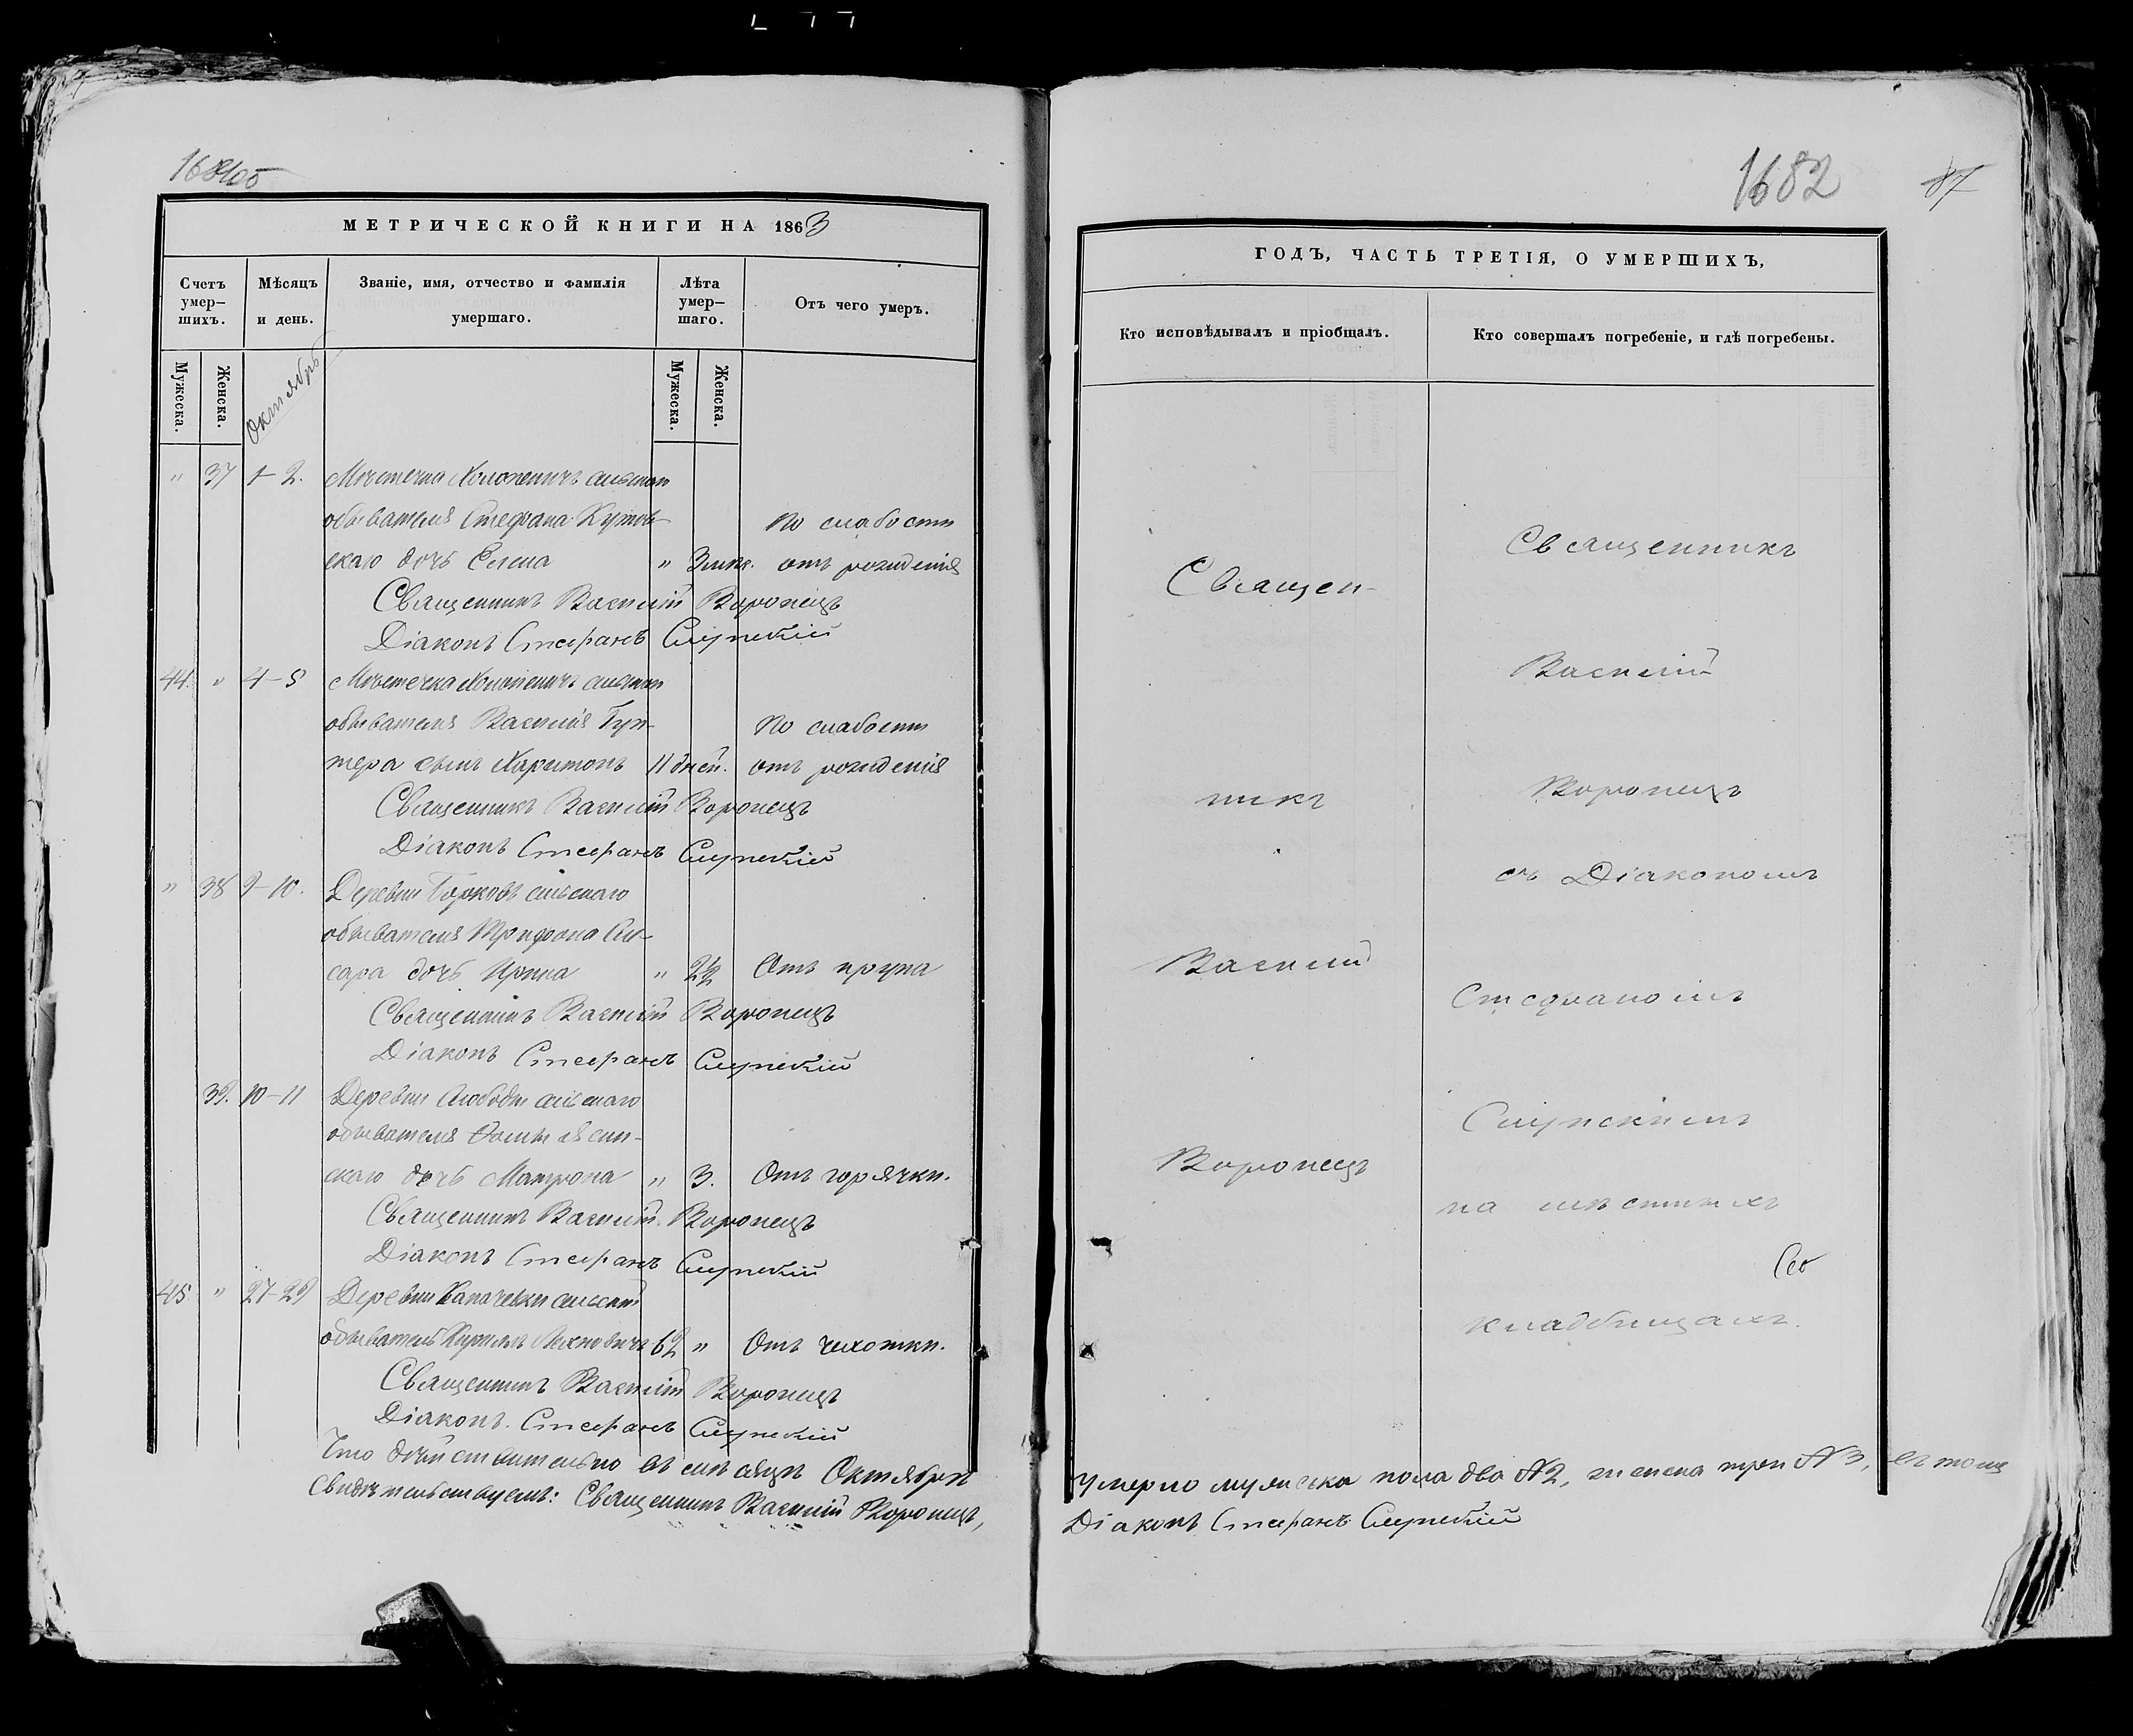 1682
87
МЕТРИЧЕСКОЙ КНИГИ НА 1863
Счетъ умер–шихъ.
Мѣсяцъ и день.
Званіе, имя, отчество и фамилія умершаго.
Лѣта умер–шаго.
Отъ чего умеръ.
Мужеска.
Женска.
Октябрь
Мужеска.
Женска.
" 37 1-2. Мѣстечка
обывателя Стефана Кутов- По слабости
скаго дочь Елена " 3 отъ рожденія
Священникъ Василій Воронецъ
Діаконъ Стефанъ Слупскій
44. " 4-5 Мѣстечка
обывателя Василія Гун- По слабости
тера сынъ Харитонъ 11 дней. отъ рожденія
Священникъ Василій Воронецъ
Діаконъ Стефанъ Слупскій
" 38 9-10. Деревни Борковъ сельскаго
обывателя Трифона
сара дочь Ирина " От крупа
Священникъ Василій Воронецъ
Діаконъ Стефанъ Слупскій
39. 10-11 Деревни Слободы сельскаго
обывателя Фомы
скаго дочь Матрона " 3. Отъ горячки.
Священникъ Василій Воронецъ
Діаконъ Стефанъ Слупскій
45. " 27-29 Деревни
обыватель Кириллъ 62 " Отъ чахотки.
Священникъ Василій Воронецъ
Діаконъ Стефанъ Слупскій
Что дѣйствительно въ мѣсяцѣ Октябрѣ
свидѣтельствуемъ: Священникъ Василій Воронецъ,
ГОДЪ, ЧАСТЬ ТРЕТІЯ, О УМЕРШИХЪ,
Кто исповѣдывалъ и пріобщалъ.
Кто совершалъ погребеніе, и гдѣ погребены.
Священ-
никъ
Василій
Воронецъ
Священникъ
Василій
Воронецъ
съ Діакономъ
Стефаномъ
Слупскимъ
на мѣстныхъ
кладбищахъ.
умерло мужеска пола два №2, женска три №3, въ томъ
Діаконъ Стефанъ Слупскій